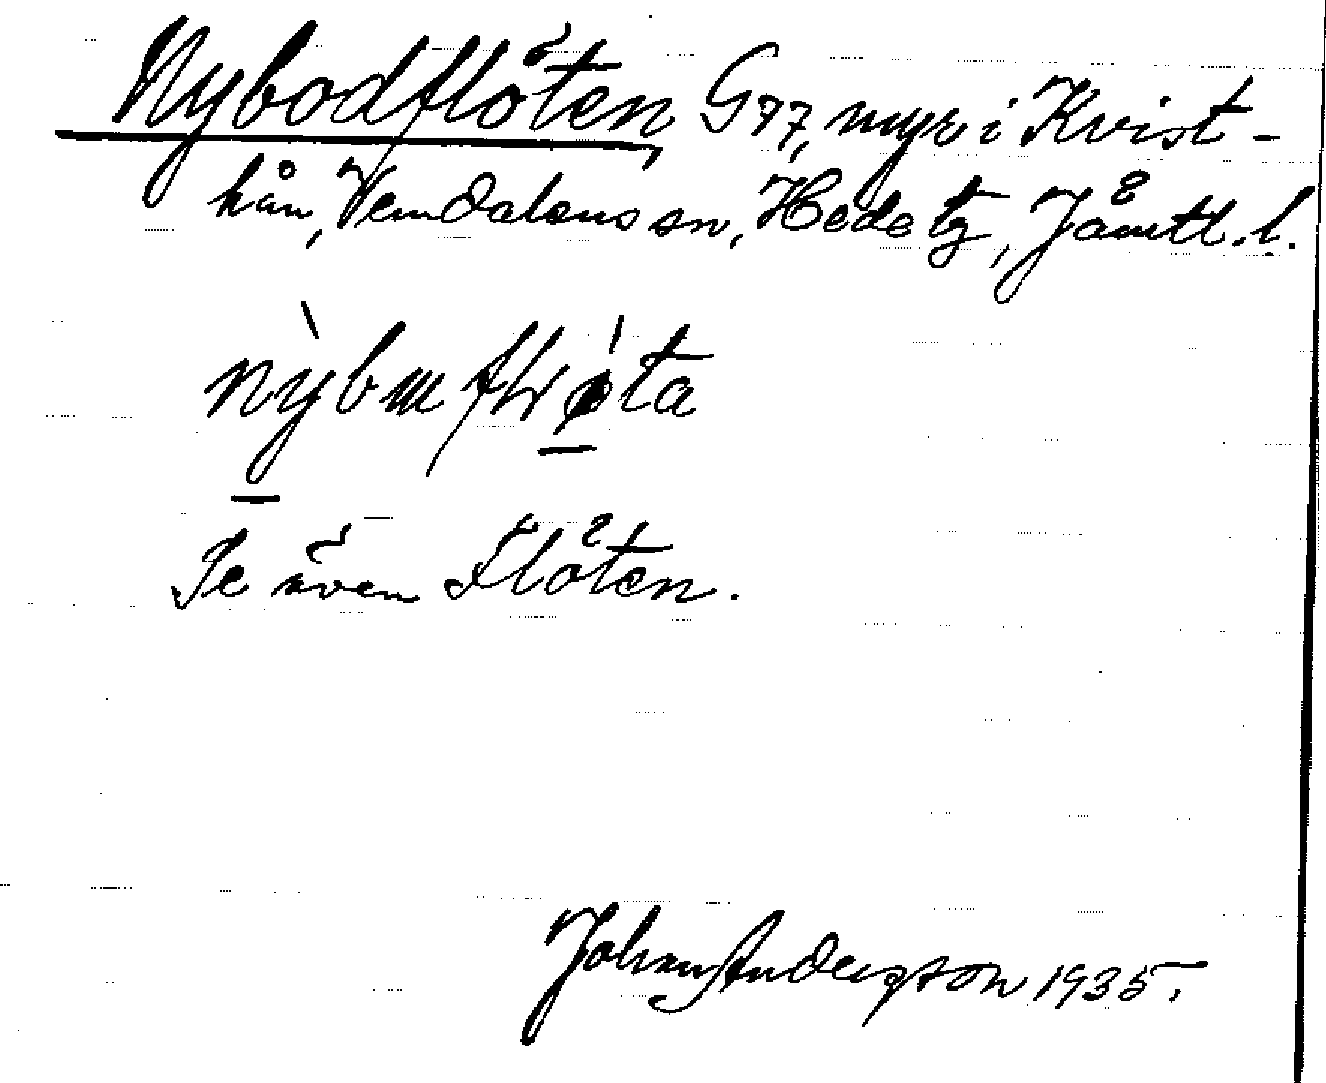 Nybodflöten, G77, myr i Kvist-
hån, Vemdalens sn, Hede tg, Jämtl. l.
Se även Flöten.
Johan Andersson 1935.